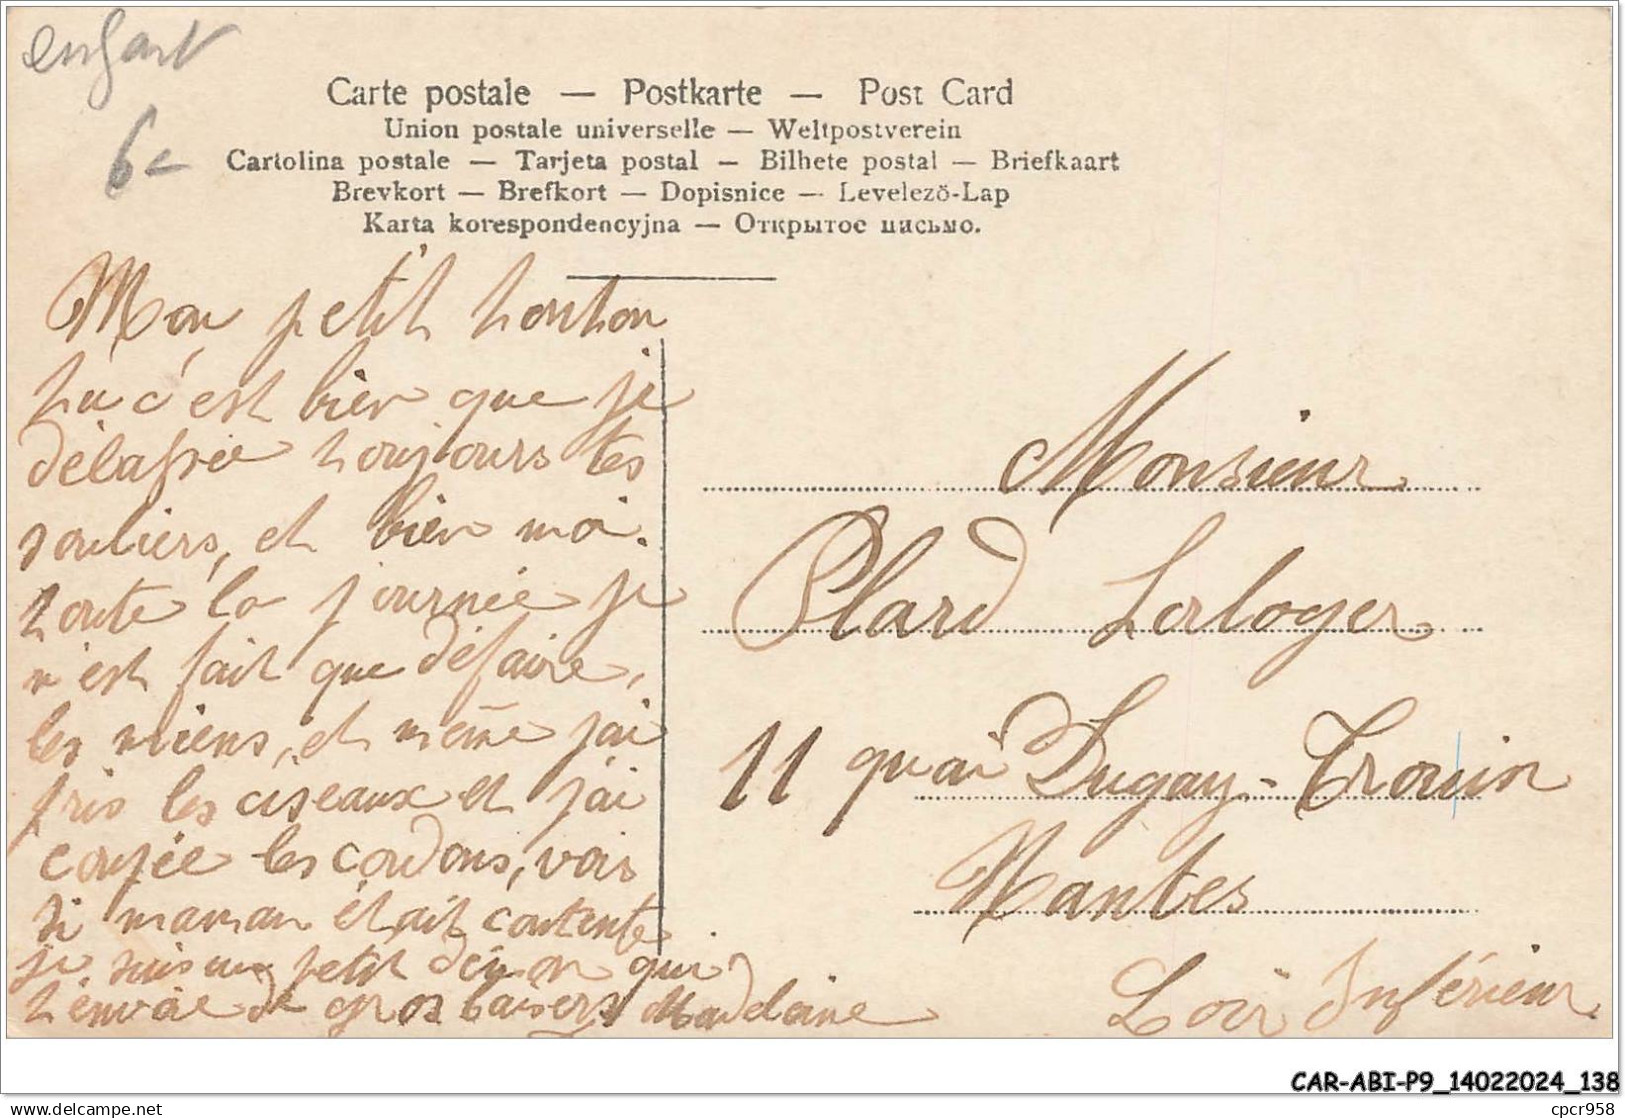 enfant
6-
Carte postale — Postkarte — Post Card
Union postale universelle — Weltpostverein
Cartolina postale — Tarjeta postal — Bilhete postal — Briefkaart
Brevkort — Brefkort — Dopisnice — Levelező-Lap
Karta korespondencyjna — Открытое письмо.
Mon petit tonton
tu c'est bien que je
délassée toujours tes
souliers, et bien moi.
toute la journée je
n'est fait que défaire,
les miens, et même j'ai
pris les ciseaux et j'ai
coupée les cordons, vois
si maman était contente
je suis un petit démon qui
t'envoie de gros baisers Madelaine
Monsieur
Plard Lorloger
11 quai Dugay-Trouin
Nantes
Loir Inférieur
CAR-ABI-P9_14022024_138
cpcr958